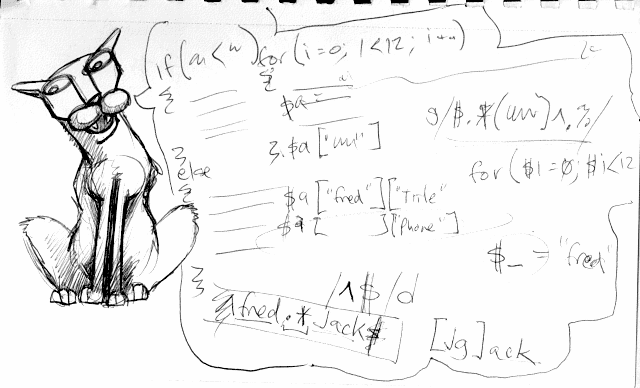 if (m < n) for (i=0; i<12; i++)
{
{
$a =
g/$.*(un)^.?/
}.$a ["un"]
}
else
for ($i=0; $i<12
{
$a ["fred"]["Title"
$a [ ]["Phone"]
$_ = "fred"
}
/^$/d
^fred.*Jack$
[Jg]ack